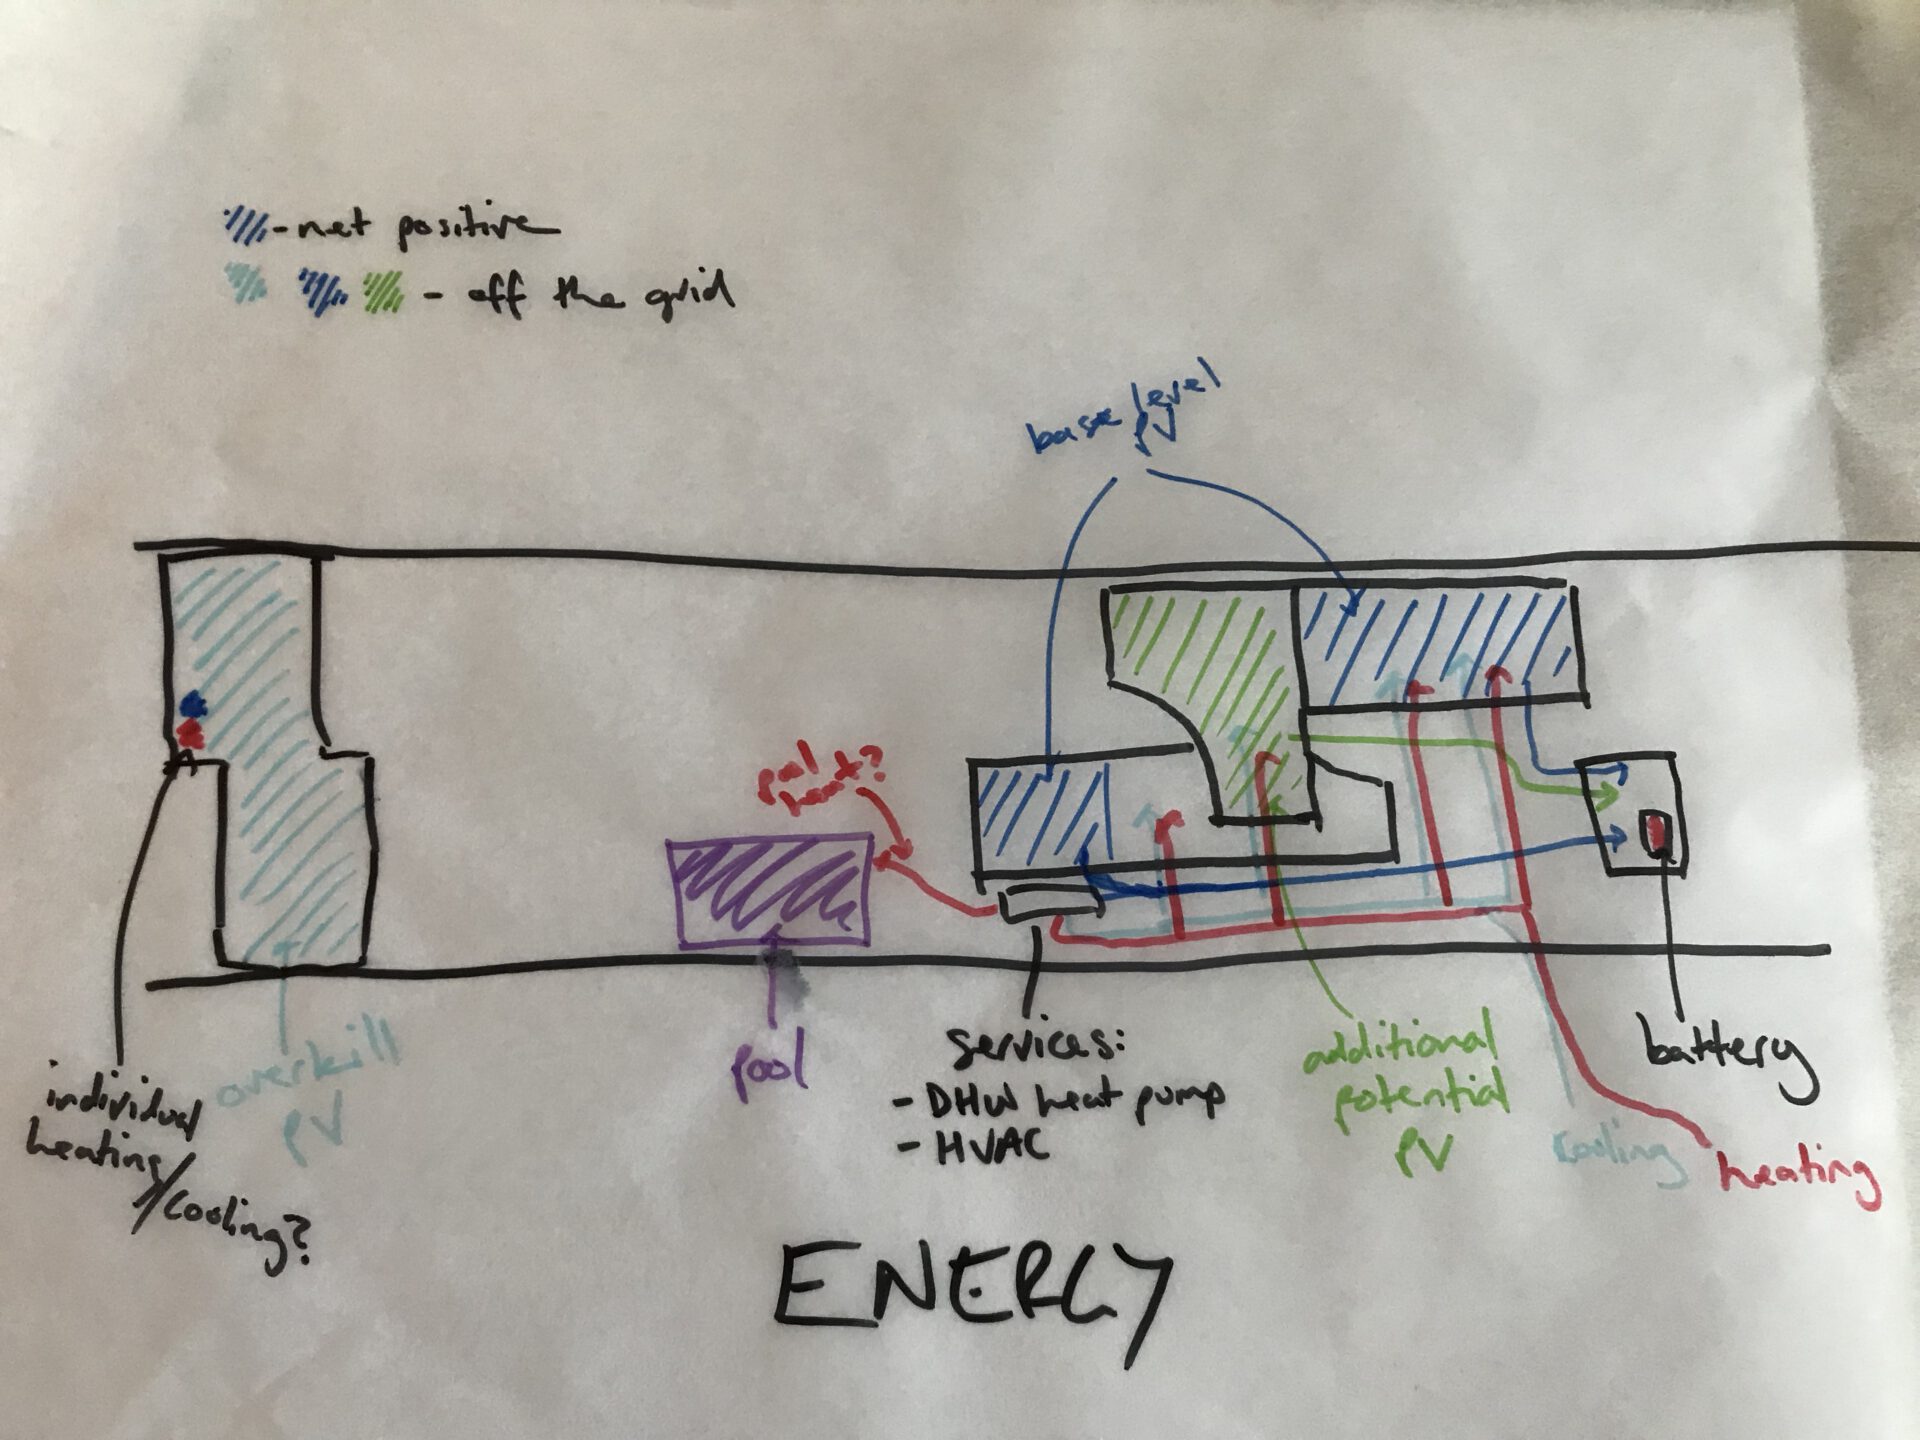 - net positive
- off the grid
base level
PV
pool
heat?
individual
heating
/cooling?
overkill
PV
pool
services:
- DHW heat pump
- HVAC
additional
potential
PV
cooling
heating
battery
ENERGY